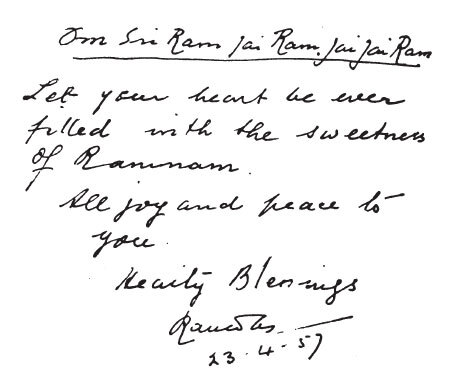 Om Sri Ram jai Ram, jai jai Ram
Let your heart be ever
filled with the sweetness
of Ramnam.
All joy and peace to
you.
Hearty Blessings
Ramdas
23.4.57